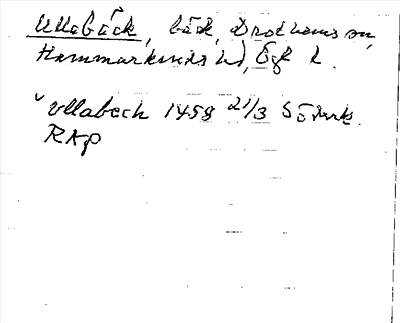 Ullabäck, bäck, Drothems sn,
Hammarkinds hd, Ög l.
v Ullabech 1458 21/3 Söderk.
RAp